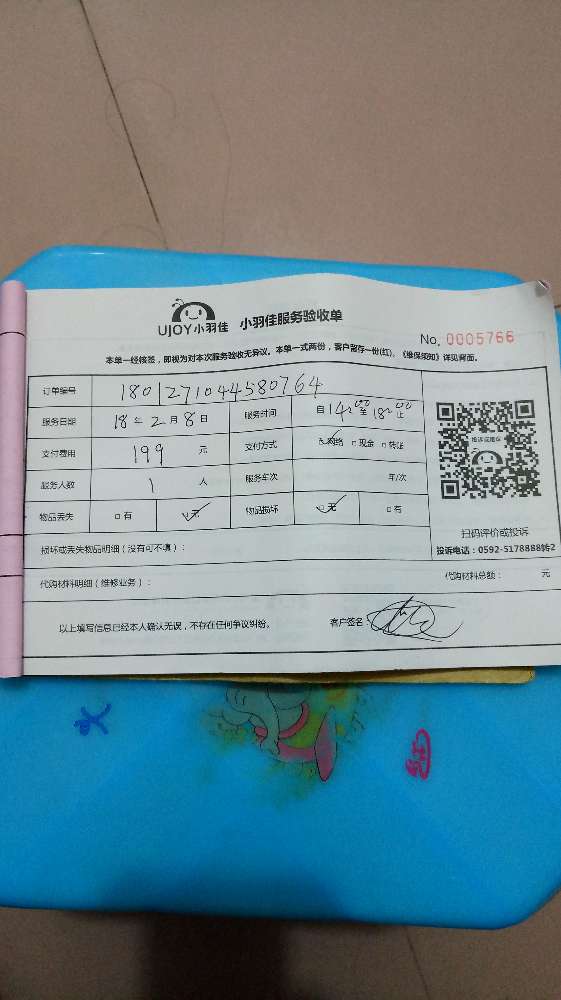 UJOY小羽佳 小羽佳服务验收单
No. 0005766
本单一经核签，即视为对本次服务验收无异议。本单一式两份，客户暂存一份(红)，《维保须知》详见背面。
订单编号 1801271044580764
服务日期 18年2月8日 服务时间 自14:00至18:00止
支付费用 199元 支付方式 ☑网络 □现金 □转账
服务人数 1人 服务车次 车/次
物品丢失 □有 ☑无 物品损坏 ☑无 □有
投诉或建议
扫码评价或投诉
投诉电话：0592-5178888转2
损坏或丢失物品明细（没有可不填）：
代购材料明细（维修业务）： 代购材料总额： 元
以上填写信息已经本人确认无误，不存在任何争议纠纷。 客户签名：